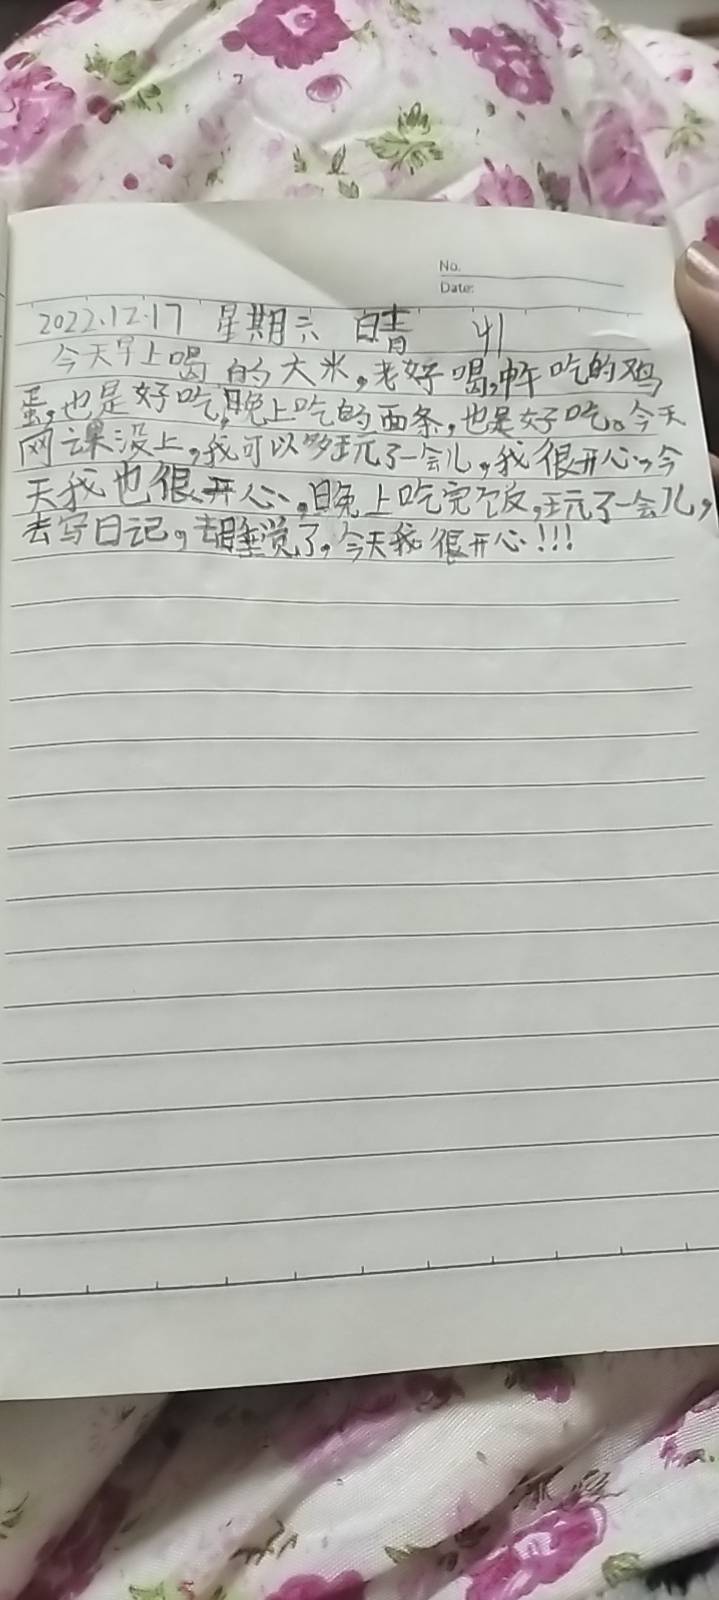 No.
Date:
2022.12.17 星期六 晴 41
今天早上喝的大米，老好喝，中午吃的鸡
蛋，也是好吃，晚上吃的面条，也是好吃。今天
网课没上，我可以多玩了一会儿，我很开心，今
天我也很开心，晚上吃完饭，玩了一会儿，
去写日记，去睡觉了，今天我很开心！！！